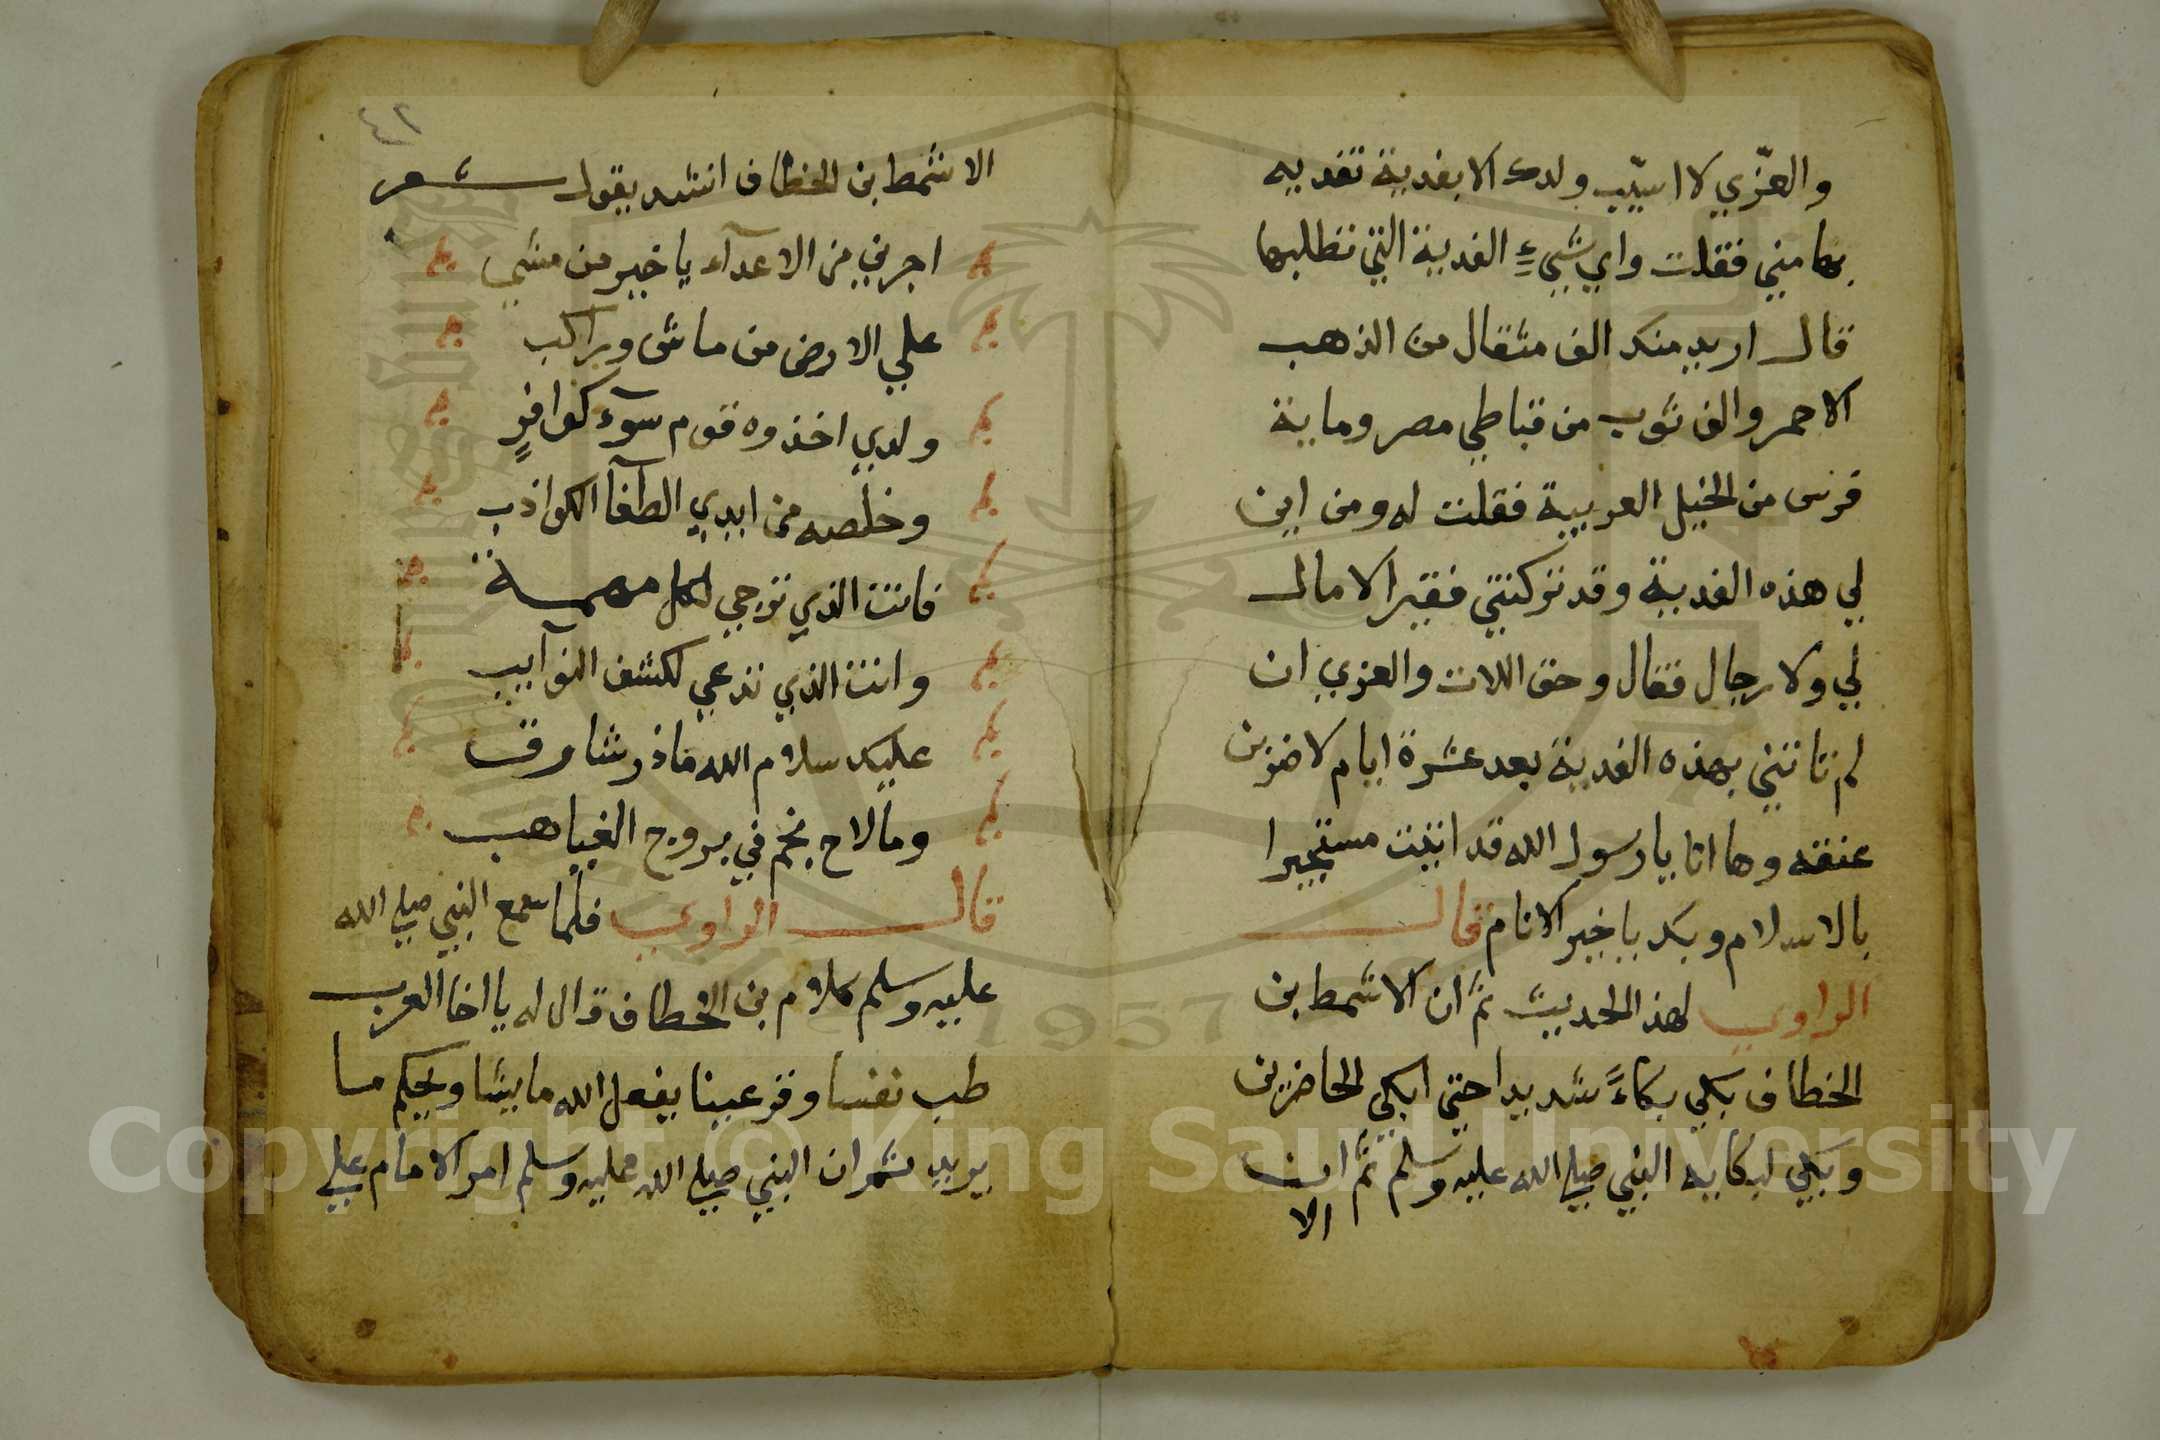 والعزي لا اسيب ولدك الا بفدية تفديه
بها مني فقلت واي شيء الفدية التي تطلبها
قال اريد منك الف مثقال من الذهب
الاحمر والف ثوب من قباطي مصر وماية
فرس من الخيل العربية فقلت له ومن اين
لي هذه الفدية وقد تركتني فقيرا لا مال
لي ولا رجال فقال وحق اللات والعزي ان
لم تاتني بهذه الفدية بعد عشرة ايام لاضربن
عنقه وها انا يا رسول الله قد اتيت مستجيرا
بالاسلام وبك يا خير الانام قال
الراوي لهذا الحديث ثم ان الاشمط بن
الخطاف بكي بكاءً شديدا حتي ابكي الحاضرين
وبكي لبكايه النبي صلي الله عليه وسلم ثم ان
الا
٤٢
الاشمط بن الخطاف انشد يقول شعر
اجرني من الاعدآء يا خير من مشي
علي الارض من ماش وراكب
ولدي اخذوه قوم سوآء كوافرٍ
وخلصه من ايدي الطغا الكواذب
فانت الذي ترجي لكل مهمة
وانت الذي تدعي لكشف النوآيب
عليك سلام الله ماذر شارق
وما لاح نجم في بروج الغياهب
قال الراوي فلما سمع النبي صلي الله
عليه وسلم كلام بن الخطاف قال له يا اخا العرب
طب نفسا وقر عينا يفعل الله ما يشا ويحكم ما
يريد ثم ان النبي صلي الله عليه وسلم امر الامام علي
1957
Copyright © King Saud University